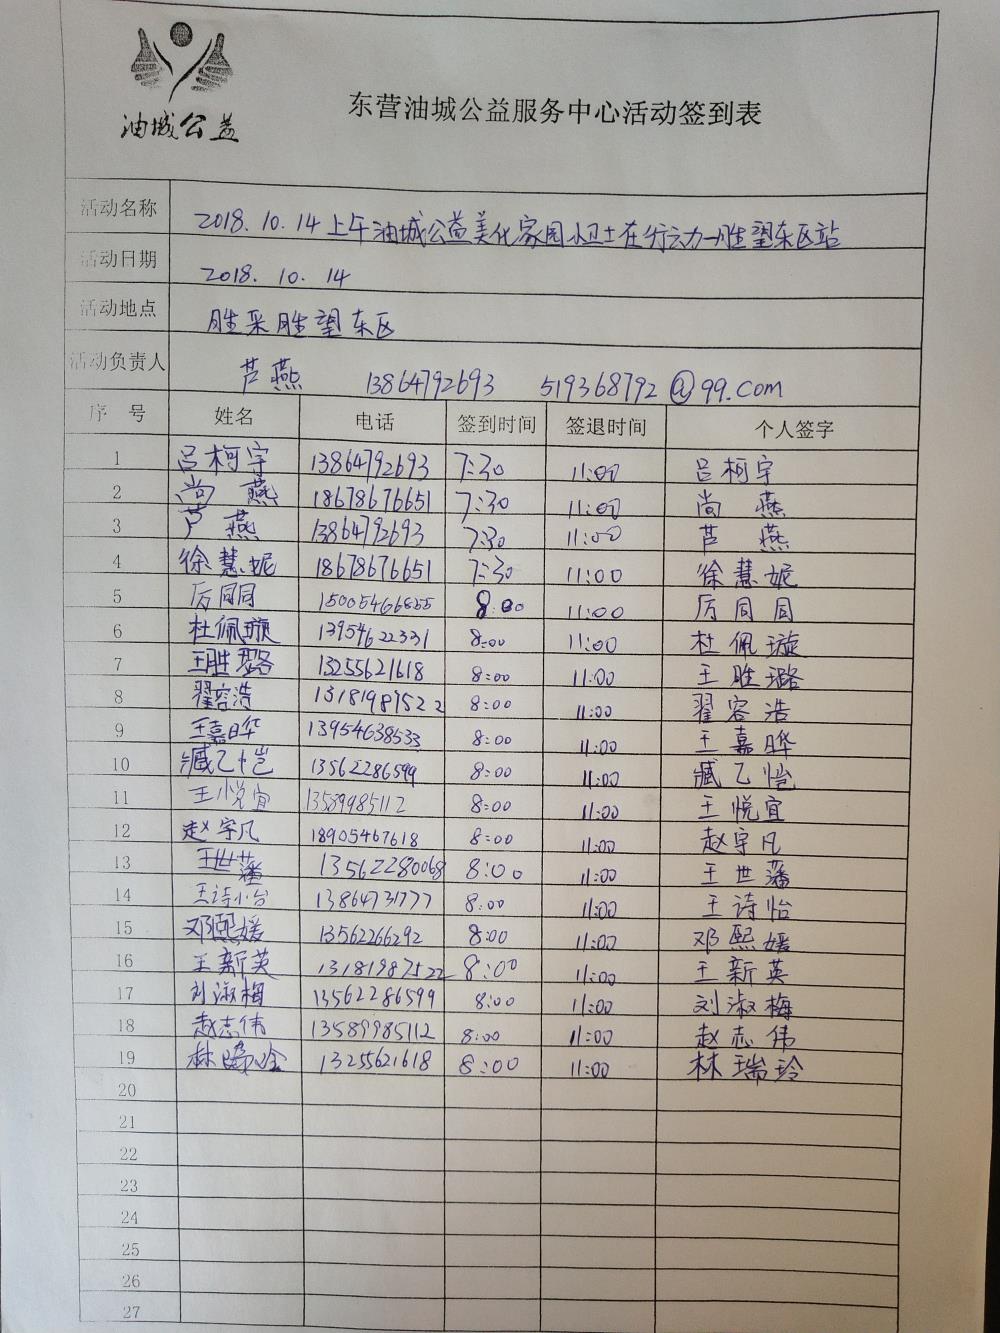 油城公益
东营油城公益服务中心活动签到表
活动名称 2018.10.14上午油城公益美化家园小卫士在行动—胜望东区站
活动日期 2018.10.14
活动地点 胜采胜望东区
活动负责人 芦燕 13864792693 519368792@99.com
序号 姓名 电话 签到时间 签退时间 个人签字
1 吕柯宇 13864792693 7:30 11:00 吕柯宇
2 尚燕 18678676651 7:30 11:00 尚燕
3 芦燕 13864792693 7:30 11:00 芦燕
4 徐慧妮 18678676651 7:30 11:00 徐慧妮
5 厉同同 15005466855 8:00 11:00 厉同同
6 杜佩璇 13954622331 8:00 11:00 杜佩璇
7 王胜璐 13255621618 8:00 11:00 王胜璐
8 翟容浩 13181987522 8:00 11:00 翟容浩
9 王嘉晔 13954638533 8:00 11:00 王嘉晔
10 臧乙恺 13562286599 8:00 11:00 臧乙恺
11 王悦宜 13589985112 8:00 11:00 王悦宜
12 赵宇凡 18905467618 8:00 11:00 赵宇凡
13 王世藩 13562280068 8:00 11:00 王世藩
14 王诗怡 13864731777 8:00 11:00 王诗怡
15 邓熙媛 13562266292 8:00 11:00 邓熙媛
16 王新英 13181987522 8:00 11:00 王新英
17 刘淑梅 13562286599 8:00 11:00 刘淑梅
18 赵志伟 13589985112 8:00 11:00 赵志伟
19 林瑞玲 13255621618 8:00 11:00 林瑞玲
20
21
22
23
24
25
26
27